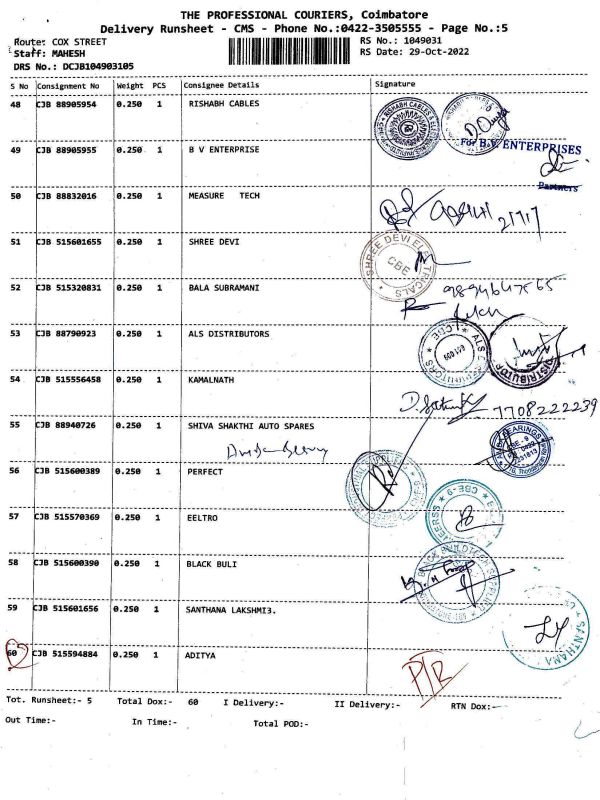 THE PROFESSIONAL COURIERS, Coimbatore
Delivery Runsheet - CMS - Phone No.:0422-3505555 - Page No.:5
Route: COX STREET RS No.: 1049031
Staff: MAHESH RS Date: 29-Oct-2022
DRS No.: DCJB104903105
S No Consignment No Weight PCS Consignee Details Signature
48 CJB 88905954 0.250 1 RISHABH CABLES
49 CJB 88905955 0.250 1 B V ENTERPRISE
For B.V. ENTERPRISES
Partners
50 CJB 88832016 0.250 1 MEASURE TECH
51 CJB 515601655 0.250 1 SHREE DEVI
SHREE DEVI ELECTRICALS
CBE
52 CJB 515320831 0.250 1 BALA SUBRAMANI
53 CJB 88790923 0.250 1 ALS DISTRIBUTORS
54 CJB 515556458 0.250 1 KAMALNATH
7708222239
55 CJB 88940726 0.250 1 SHIVA SHAKTHI AUTO SPARES
56 CJB 515600389 0.250 1 PERFECT
57 CJB 515570369 0.250 1 EELTRO
58 CJB 515600390 0.250 1 BLACK BULI
59 CJB 515601656 0.250 1 SANTHANA LAKSHMI3.
60 CJB 515594884 0.250 1 ADITYA
Tot. Runsheet:- 5 Total Dox:- 60 I Delivery:- II Delivery:- RTN Dox:-
Out Time:- In Time:- Total POD:-